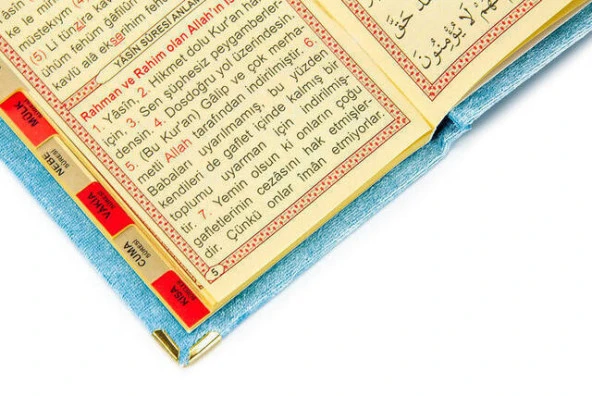 ke le
müstekiym
(5) Li tünzira
ünüm fehüm ğâfilûn
kavlü alâ ekserihim
YASİN SÛRESİ
Rahman ve Rahim olan Allah'ın
1. Yâsîn, 2. Hikmet dolu Kur'an hak
için, 3. Sen şüphesiz peygamberler-
densin. 4. Dosdoğru yol üzerindesin.
5. (Bu Kur'an) Gâlip ve çok merha-
metli Allah tarafından indirilmiştir. 6.
Babaları uyarılmamış, bu yüzden
kendileri de gaflet içinde kalmış bir
toplumu uyarman için indirilmiş-
tir. 7. Yemin olsun ki onların çoğu
gafletlerinin cezâsını hak etmişler-
dir. Çünkü onlar îmân etmiyorlar.
5
حَقَّ
لَا يُؤْمِنُونَ
MÜLK
SÛRESİ
NEBE
SÛRESİ
VAKIA
SÛRESİ
CUMA
SÛRESİ
KISA